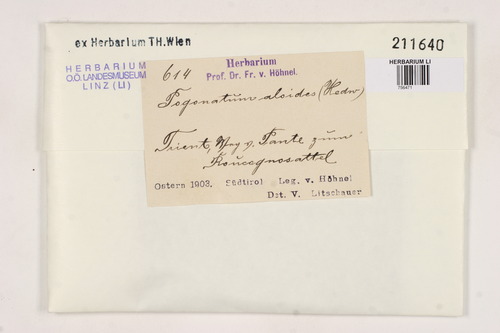 ex Herbarium TH.Wien
211640
HERBARIUM
O.Ö. LANDESMUSEUM
LINZ (LI)
HERBARIUM LI
Herbarium
Prof. Dr. Fr. v. Höhnel.
614
Pogonatum aloides (Hedw.)
Trient, Weg v. Pante zum
Roncegnosattel
Ostern 1903. Südtirol Leg. v. Höhnel
Det. V. Litschauer